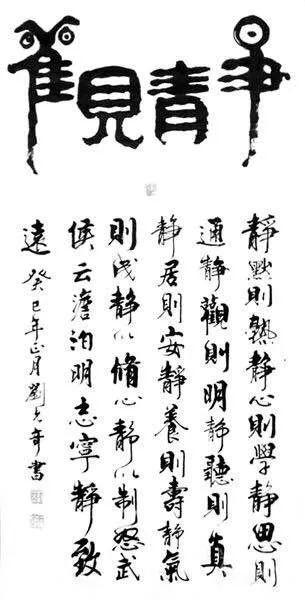 靜觀
靜默則熟靜心則學靜思則
通靜觀則明靜聽則真
靜居則安靜養則壽靜氣
則成靜以脩心靜以制怒武
侯云澹泊明志寧靜致
遠 癸巳年正月劉奇書